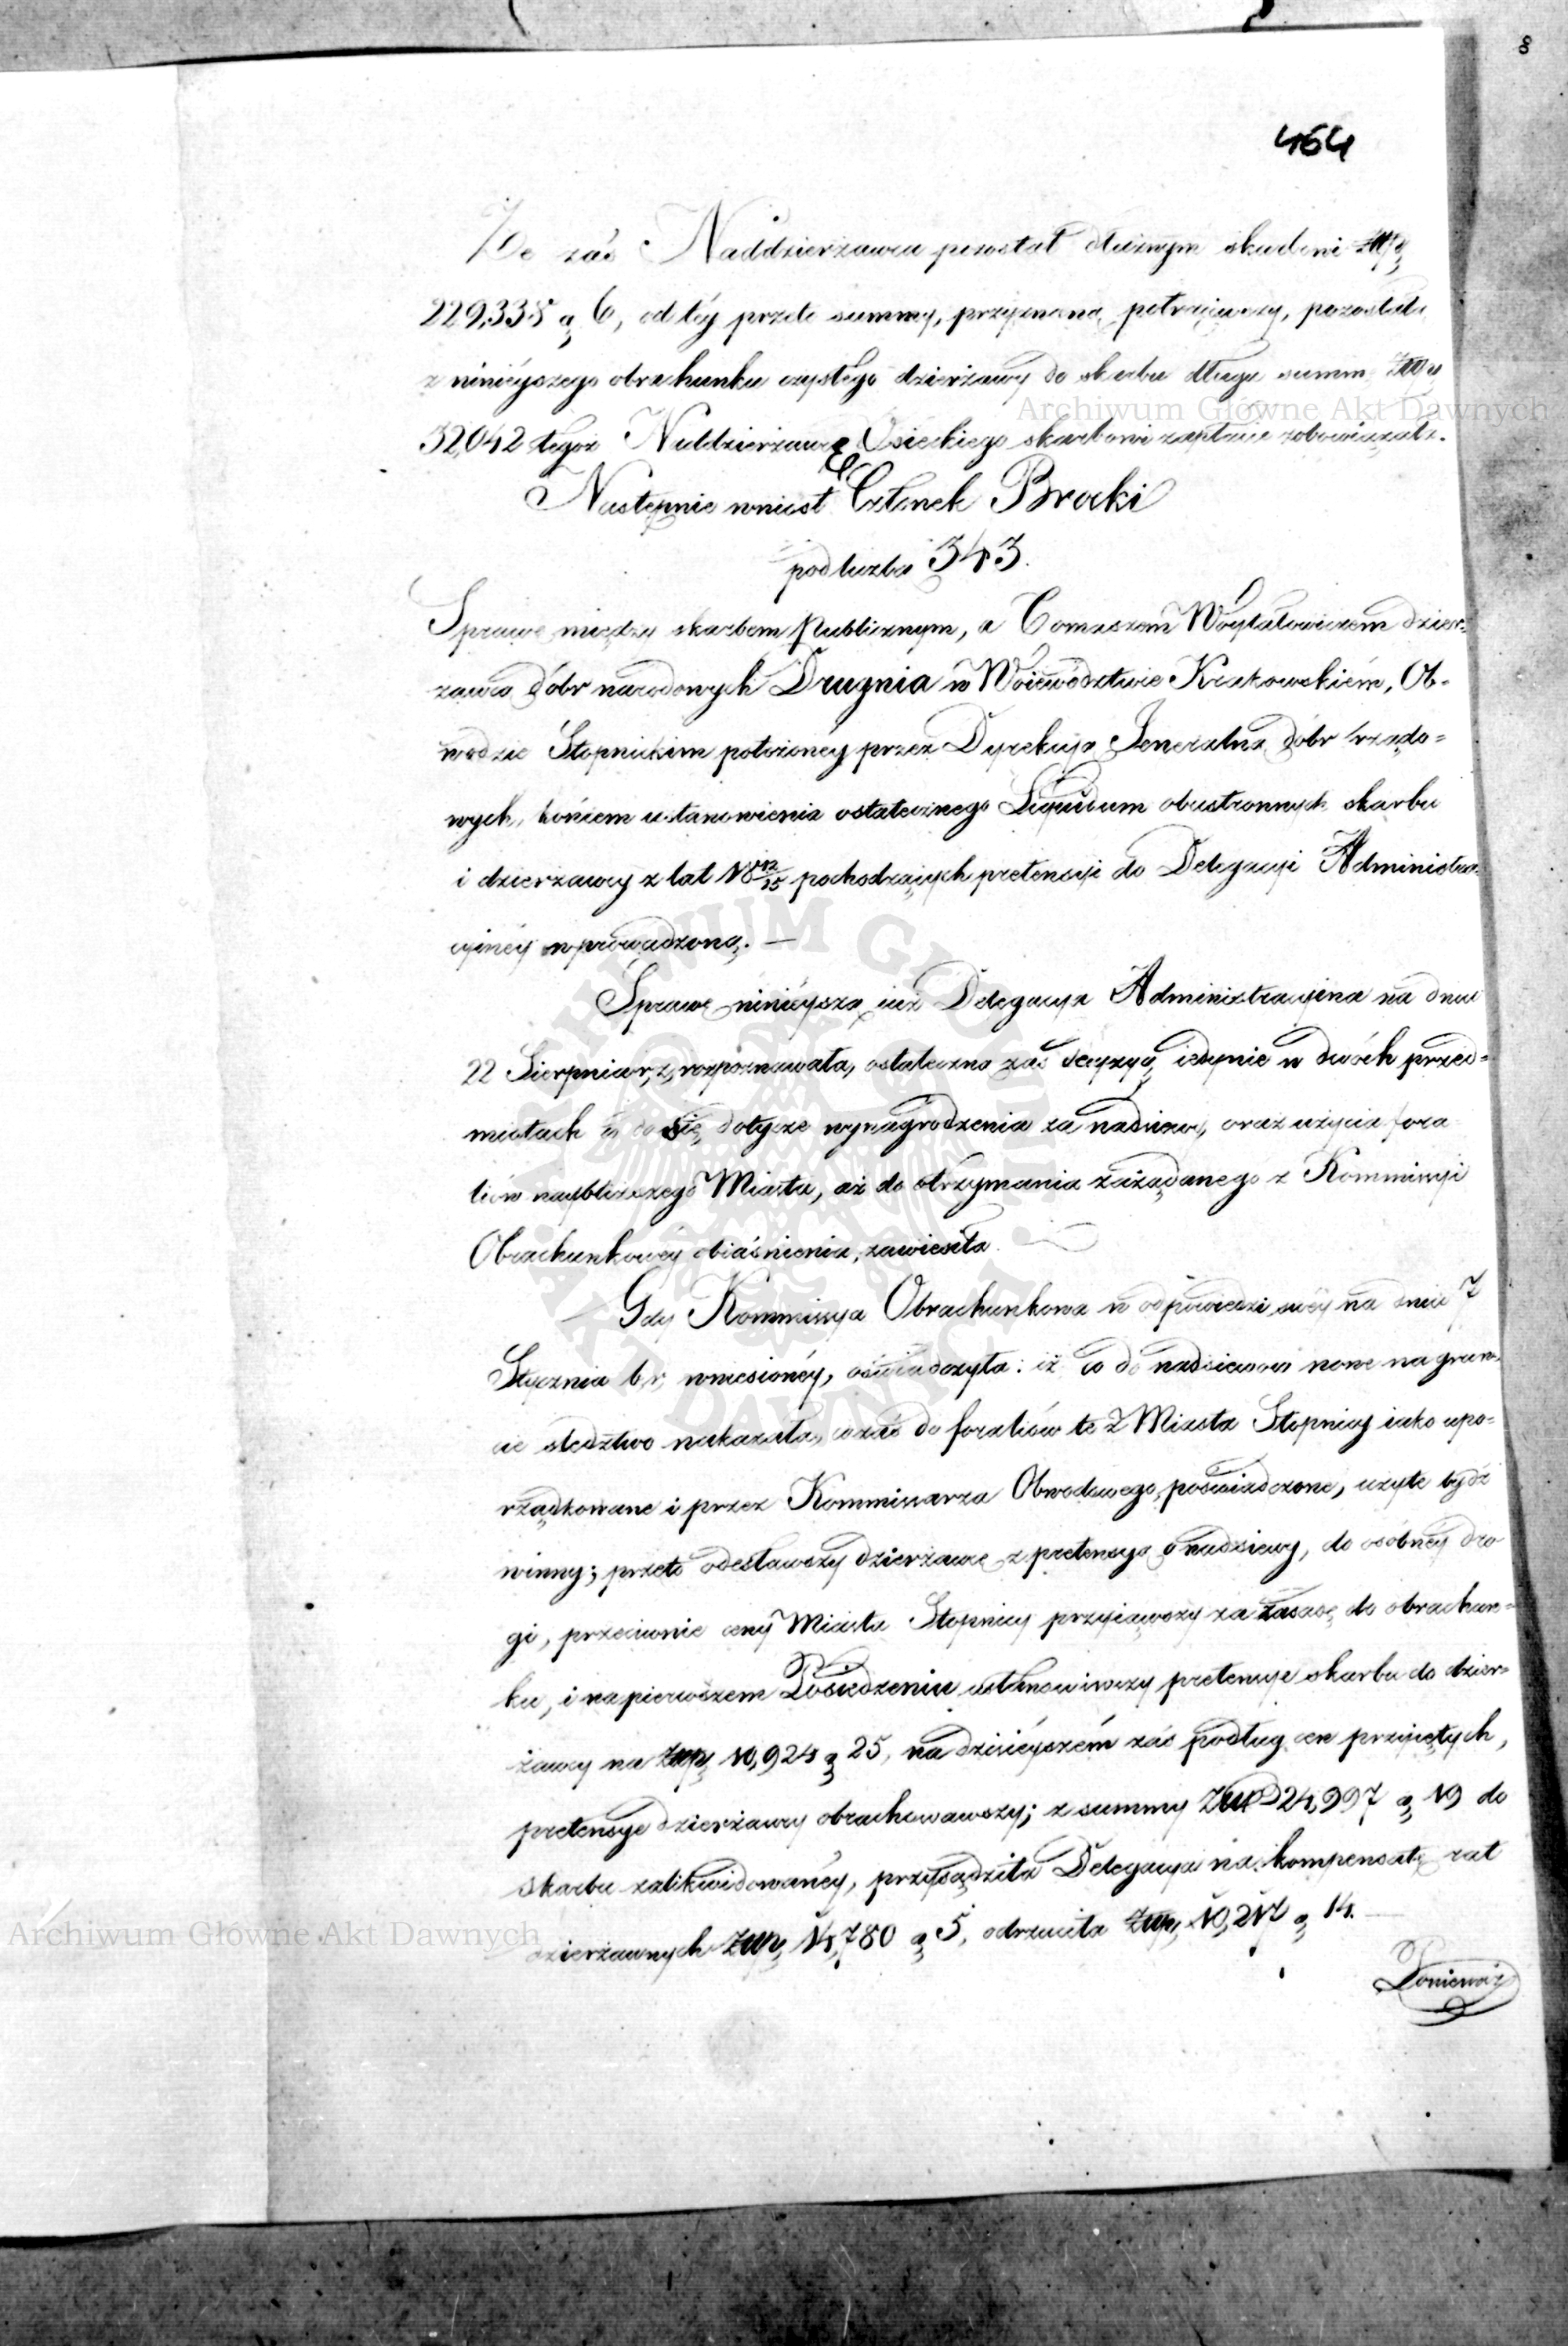 8
464
Że zaś Naddzierżawca pozostał dłużnym skarbowi Złp
229,335 g 6, od téy przeto summy, przyznaną potrąciwszy, pozostałe
z ninieyszego obrachunku czystego dzierżawcy do skarbu długu summę Złp
32,042 tegoż Naddzierżawcę Osieckiego skarbowi zapłacić zobowiązała.
Archiwum Główne Akt Dawnych
Następnie wniosł Członek Brocki
pod liczbą 343.
Sprawę między skarbem Publicznym, a Tomaszem Woytałowiczem dzier-
żawcą dóbr narodowych Drugnia w Woiewództwie Krakowskiém, Ob-
wodzie Stopnickim położonéy przez Dyrekcyą Jeneralną dóbr rządo-
wych, końcem ustanowienia ostatecznego Liquidum obustronnych skarbu
i dzierżawcy z lat 18 12/15 pochodzących pretensyi do Delegacyi Administra-
cyinéy wprowadzoną. —
Sprawę ninieyszą iuż Delegacya Administracyina na dniu
22 Sierpnia r. z. rozpoznawała, ostateczną zaś decyzyą iedynie w dwóch przed-
miotach dotycze wynagrodzenia za nadsiewy, oraz użycia fora-
liów naybliższego Miasta, aż do otrzymania zażądanego z Kommissyi
Obrachunkowéy obiaśnienia, zawiesiła.
Gdy Kommissya Obrachunkowa w odpowiedzi swéy na dniu 7
Stycznia b. r. wniesionéy, oświadczyła: iż co do nadsiewów nowe na grun-
cie śledztwo nakazała, co zaś do foraliów te z Miasta Stopnicy iako upo-
rządkowane i przez Kommissarza Obwodowego poświadczone, użyte bydź
winny; przeto odesławszy dzierżawcę z pretensyą o nadsiewy, do osobnéy dro-
gi, przeciwnie ceny Miasta Stopnicy przyiąwszy za zasadę do obrachun-
ku, i na pierwszem Posiedzeniu ustanowiwszy pretensye skarbu do dzier-
żawcy na Złp 10,924 g 25, na dzisieyszém zaś podług cen przyiętych,
pretensye dzierżawcy obrachowawszy; z summy Złp 24,997 g 19 do
skarbu zalikwidowanéy, przysądziła Delegacya na kompensatę rat
dzierżawnych Złp 14,780 g 5, odrzuciła Złp 10,217 g 14. —
Archiwum Główne Akt Dawnych
Ponieważ
ARCHIWUM GŁÓWNE AKT DAWNYCH